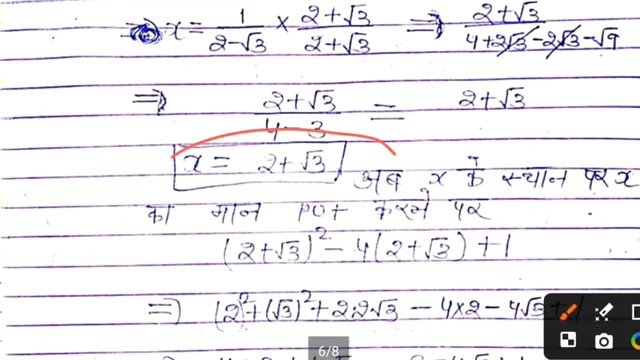 ⇒ x = 1/(2-√3) × (2+√3)/(2+√3) ⇒ (2+√3)/(4+2√3-2√3-√9)
⇒ (2+√3)/(4-3) = 2+√3
x = 2+√3, अब x के स्थान पर x
का मान put करने पर
(2+√3)² - 4(2+√3) + 1
⇒ (2²+(√3)²+2·2√3 - 4×2 - 4√3 + 1
6/8